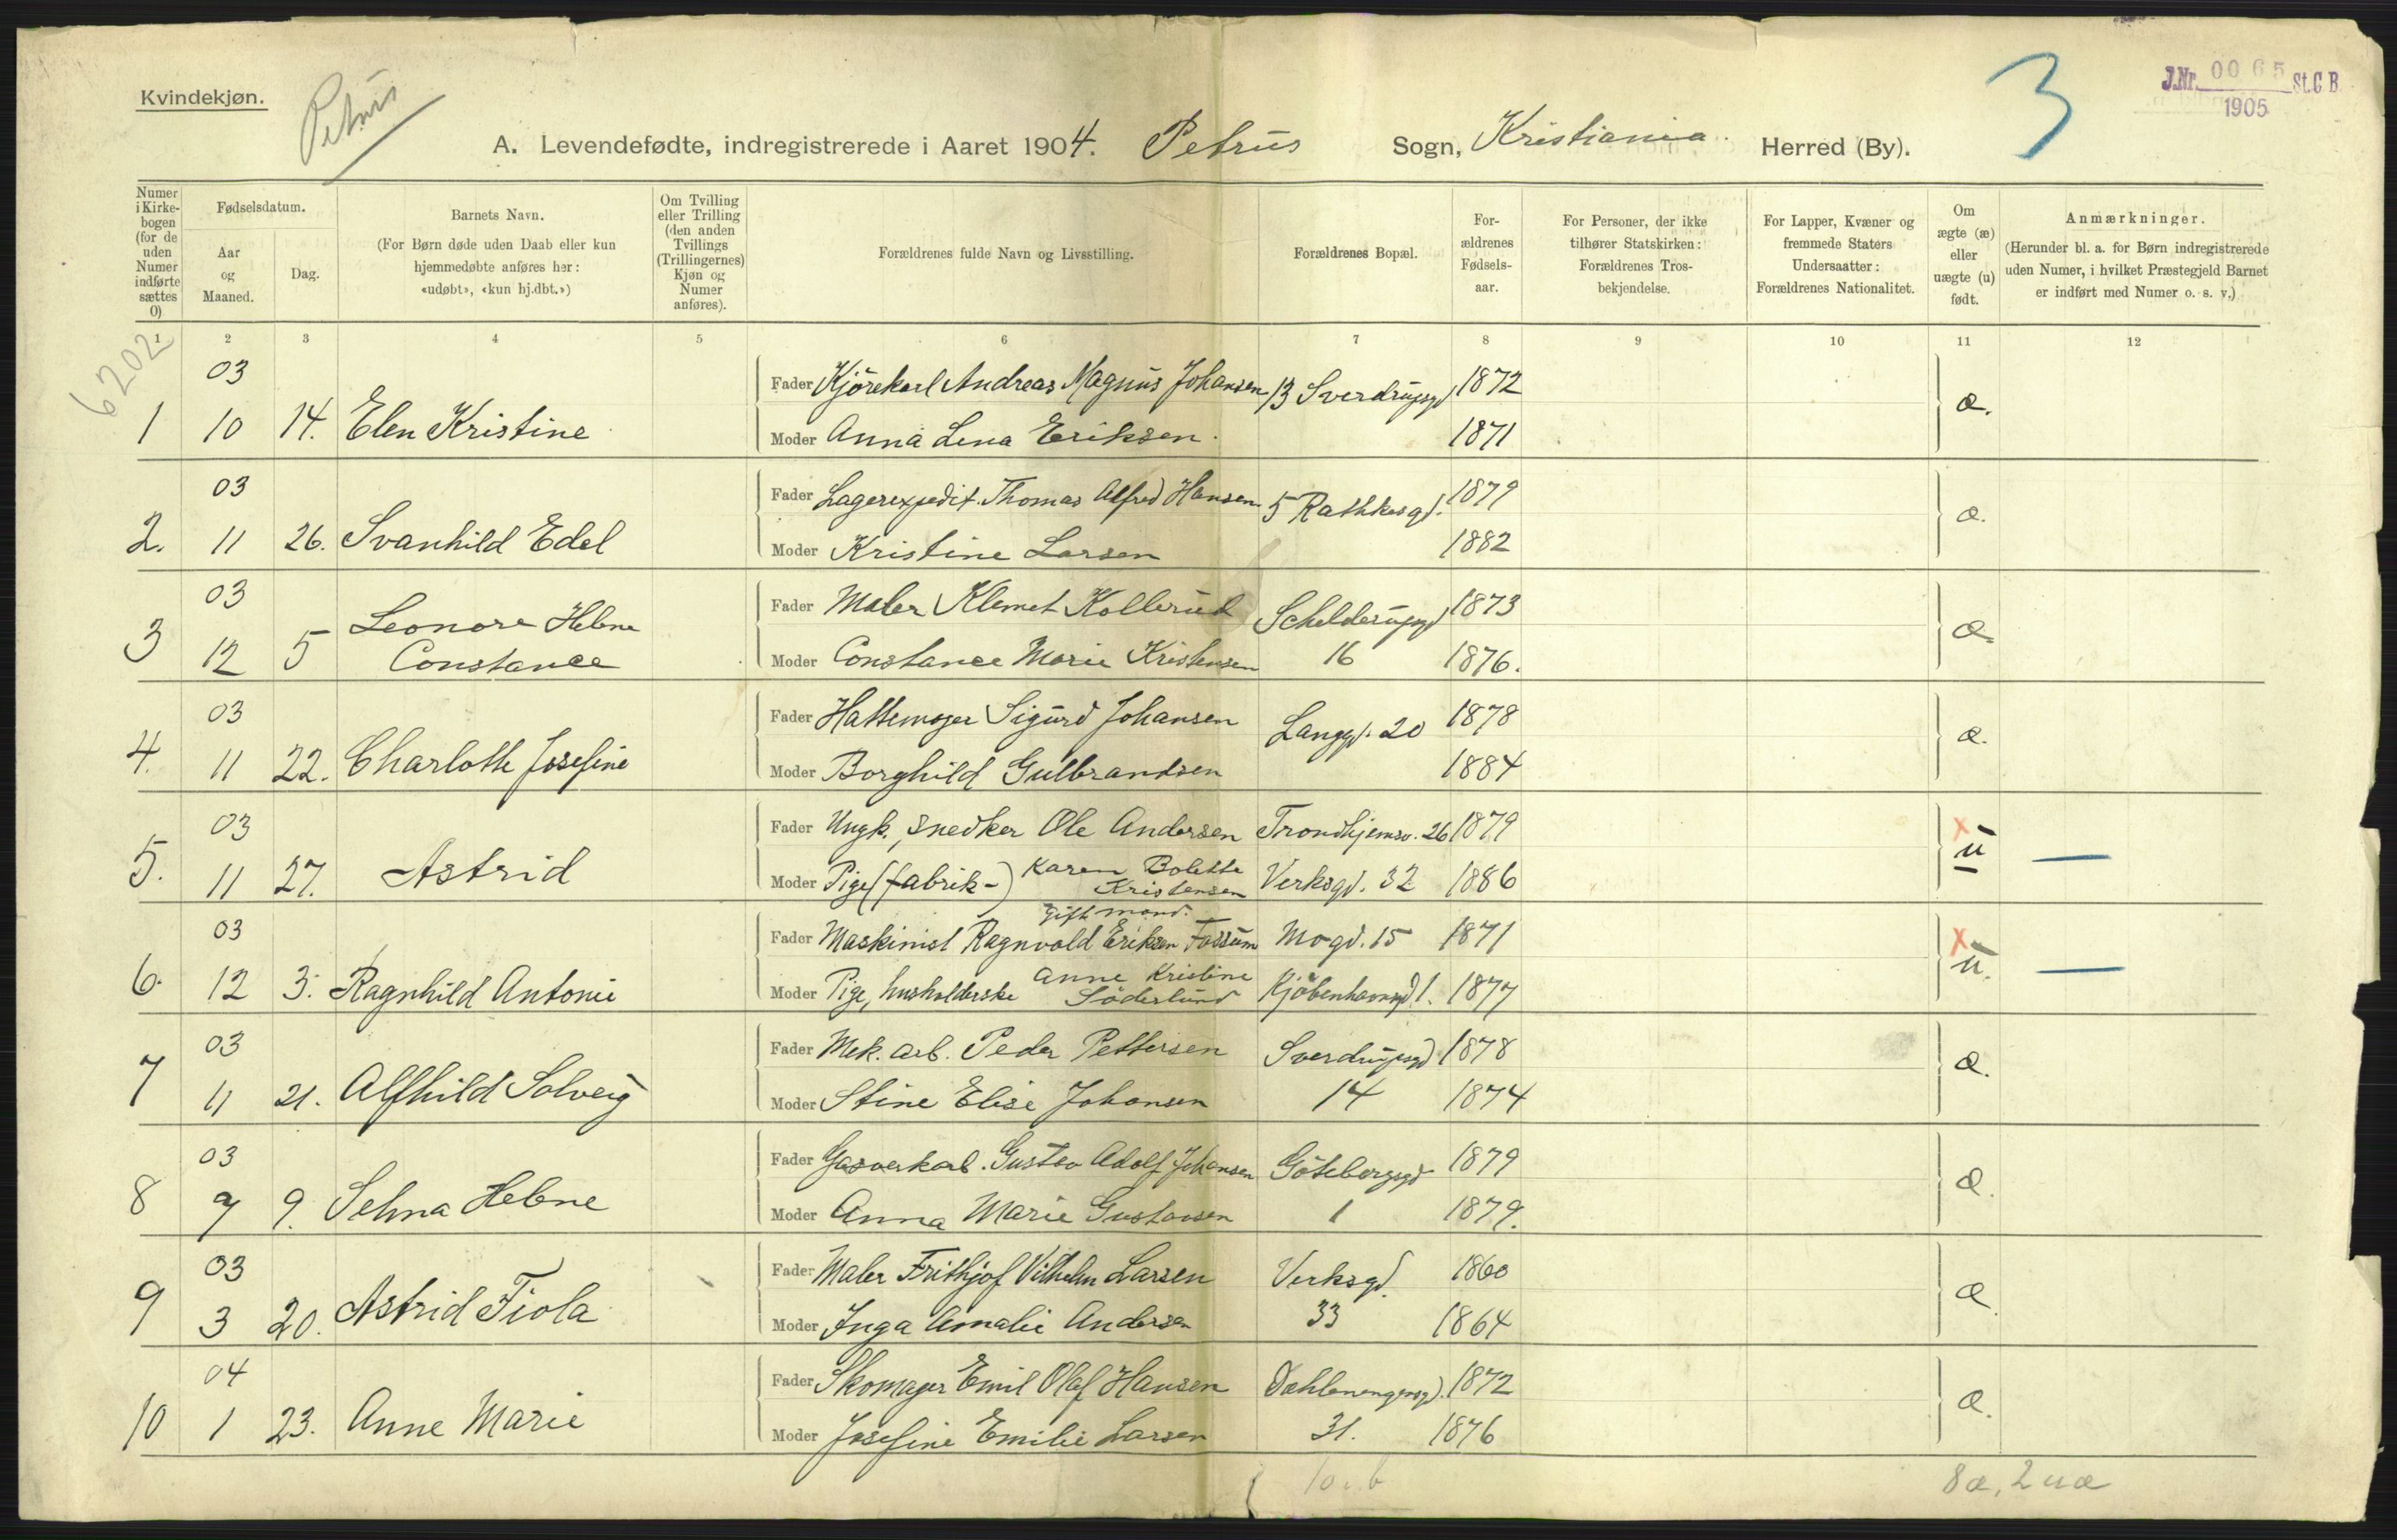 Kvindekjøn.
Petrus
3
J.Nr. 0065 St.C B.
1905
A. Levendefødte, indregistrerede i Aaret 1904. Petrus Sogn, Kristiania Herred (By).
Numer i Kirkebogen (for de uden Numer indførte sættes 0)
Fødselsdatum.
Aar og Maaned.
Dag.
Barnets Navn.
(For Børn døde uden Daab eller kun hjemmedøbte anføres her: «udøbt», «kun hj.dbt.»)
Om Tvilling eller Trilling (den anden Tvillings (Trillingernes) Kjøn og Numer anføres).
Forældrenes fulde Navn og Livsstilling.
Forældrenes Bopæl.
Forældrenes Fødselsaar.
For Personer, der ikke tilhører Statskirken: Forældrenes Trosbekjendelse.
For Lapper, Kvæner og fremmede Staters Undersaatter: Forældrenes Nationalitet.
Om ægte (æ) eller uægte (u) født.
Anmærkninger.
(Herunder bl. a. for Børn indregistrerede uden Numer, i hvilket Præstegjeld Barnet er indført med Numer o. s. v.)
1 2 3 4 5 6 7 8 9 10 11 12
6202
03 Fader Kjörekarl Andreas Magnus Johansen 13 Sverdrupsgd 1872 æ.
1 10 14. Elen Kristine Moder Anna Lena Eriksen. 1871
03 Fader Lagerexpedit. Thomas Alfred Hansen. 5 Rathkesgd. 1879 æ.
2. 11 26. Svanhild Edel Moder Kristine Larsen 1882
03 Leonore Helene Fader Maler Klemet Kollerud Schelderupsgd 1873 æ
3 12 5 Constance Moder Constance Marie Kristensen 16 1876.
03 Fader Hattemager Sigurd Johansen Langgd. 20 1878 æ.
4. 11 22. Charlotte Josefine Moder Borghild Gulbrandsen 1884
03 Fader Ungk., snedker Ole Andersen Trondhjemsv. 26 1879 x u —
5. 11 27. Astrid Moder Pige (fabrik-) Karen Bolette Kristensen Verksgd. 32 1886
gift mand.
03 Fader Maskinist Ragnvald Eriksen Fossum Mogd. 15 1871 x u. —
6. 12 3. Ragnhild Antonie Moder Pige, husholderske Anne Kristine Söderlund Kjöbenhavnsgd 1. 1877
03 Fader Mek. arb. Peder Pettersen Sverdrupsgd 1878 æ.
7 11 21. Alfhild Solveig Moder Stine Elise Johansen 14 1874
03 Fader Gasverkarb. Gustav Adolf Johansen Göteborgsgd 1879 æ.
8 7 9. Selma Helene Moder Anna Marie Gustavsen 1 1879.
03 Fader Maler Frithjof Vilhelm Larsen Verksgd. 1860 æ.
9 3 20. Astrid Fiola Moder Inga Amalie Andersen 33 1864
04 Fader Skomager Emil Olaf Hansen Dæhlenengensgd. 1872 æ.
10 1 23. Anne Marie Moder Josefine Emilie Larsen 31. 1876
8æ, 2uæ